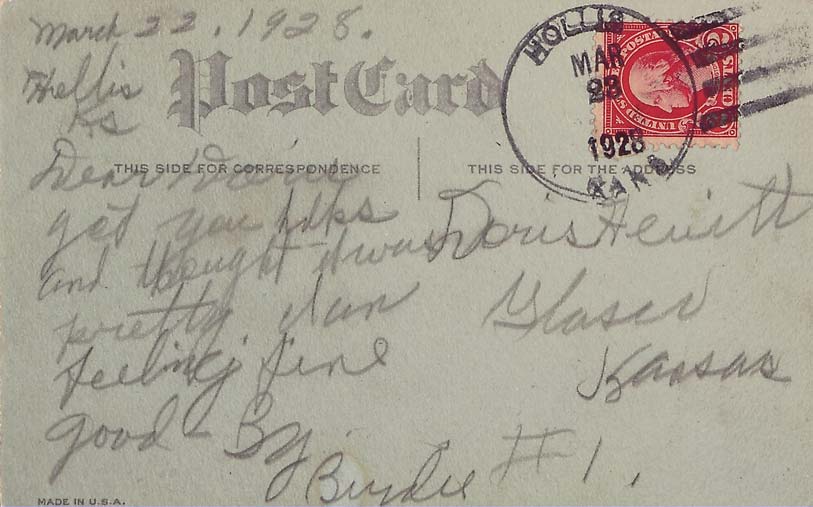 March 22, 1928.
Hollis
Ks
Post Card
THIS SIDE FOR CORRESPONDENCE
Dear Doris
got you
and thought it was
pretty. I am
feeling fine
good-By
Birdie
THIS SIDE FOR THE ADDRESS
Doris Hewitt
Glasco
Kansas
#1.
HOLLIS
MAR
23
1928
KANS
UNITED STATES POSTAGE
2 CENTS 2
MADE IN U.S.A.